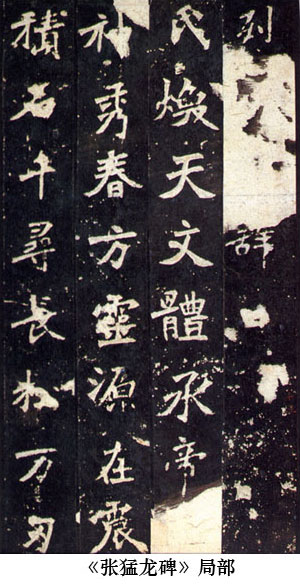 氏煥天文體承帝
神秀春方靈源在震
積石千尋長松万刃
《张猛龙碑》局部